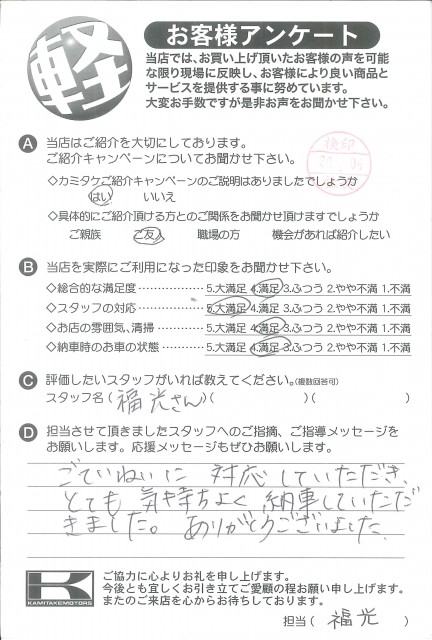 軽
お客様アンケート
当店では、お買い上げ頂いたお客様の声を可能
な限り現場に反映し、お客様により良い商品と
サービスを提供する事に努めています。
大変お手数ですが是非お声をお聞かせ下さい。
A 当店はご紹介を大切にしております。
ご紹介キャンペーンについてお聞かせ下さい。
検印
◇カミタケご紹介キャンペーンのご説明はありましたでしょうか
はい いいえ
◇具体的にご紹介頂ける方とのご関係をお聞かせ頂けますでしょうか
ご親族 ご友人 職場の方 機会があれば紹介したい
B 当店を実際にご利用になった印象をお聞かせ下さい。
◇総合的な満足度 ………………… 5.大満足 4.満足 3.ふつう 2.やや不満 1.不満
◇スタッフの対応 ………………… 5.大満足 4.満足 3.ふつう 2.やや不満 1.不満
◇お店の雰囲気、清掃 …………… 5.大満足 4.満足 3.ふつう 2.やや不満 1.不満
◇納車時のお車の状態 …………… 5.大満足 4.満足 3.ふつう 2.やや不満 1.不満
C 評価したいスタッフがいれば教えてください。(複数回答可)
スタッフ名 ( 福光さん )( )( )
D 担当させて頂きましたスタッフへのご指摘、ご指導メッセージを
お願いします。応援メッセージもぜひお願いします。
ごていねいに 対応していただき、
とても 気持ちよく 納車していただ
きました。 ありがとうございました。
K
KAMITAKE MOTORS
ご協力に心よりお礼を申し上げます。
今後とも宜しくお引き立てご愛顧の程お願い申し上げます。
またのご来店を心からお待ちしております。
担当 ( 福光 )